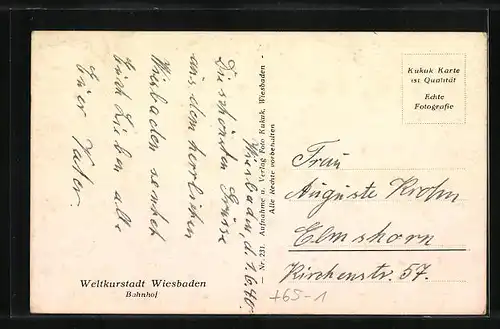 Wiesbaden, d. 1.6.40
Die schönsten Grüsse
aus dem herrlichen
Wiesbaden sendet
Euch Lieben alle
Euer Vater
Weltkurstadt Wiesbaden
Bahnhof
Nr. 231. Aufnahme u. Verlag Foto Kukuk, Wiesbaden
Alle Rechte vorbehalten
Kukuk Karte
ist Qualität
Echte
Fotografie
Frau
Auguste Krohn
Elmshorn
Kirchenstr. 57.
+65-1